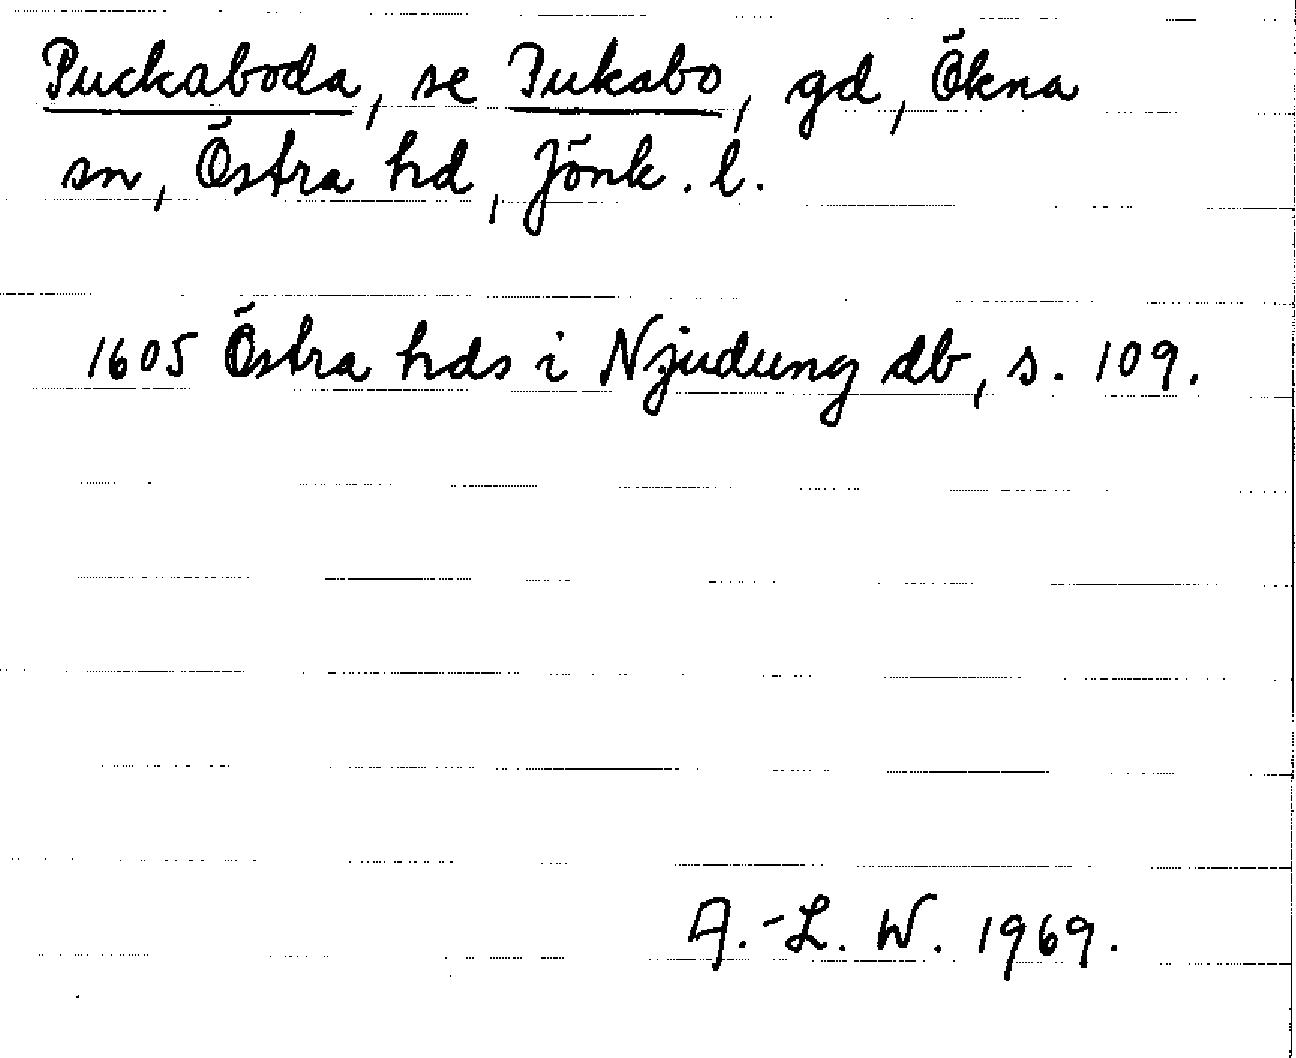 Puckaboda, se Pukabo, gd, Ökna
sn, Östra hd, Jönk. l.
1605 Östra hds i Njudung db, s. 109.
A.-L. W. 1969.